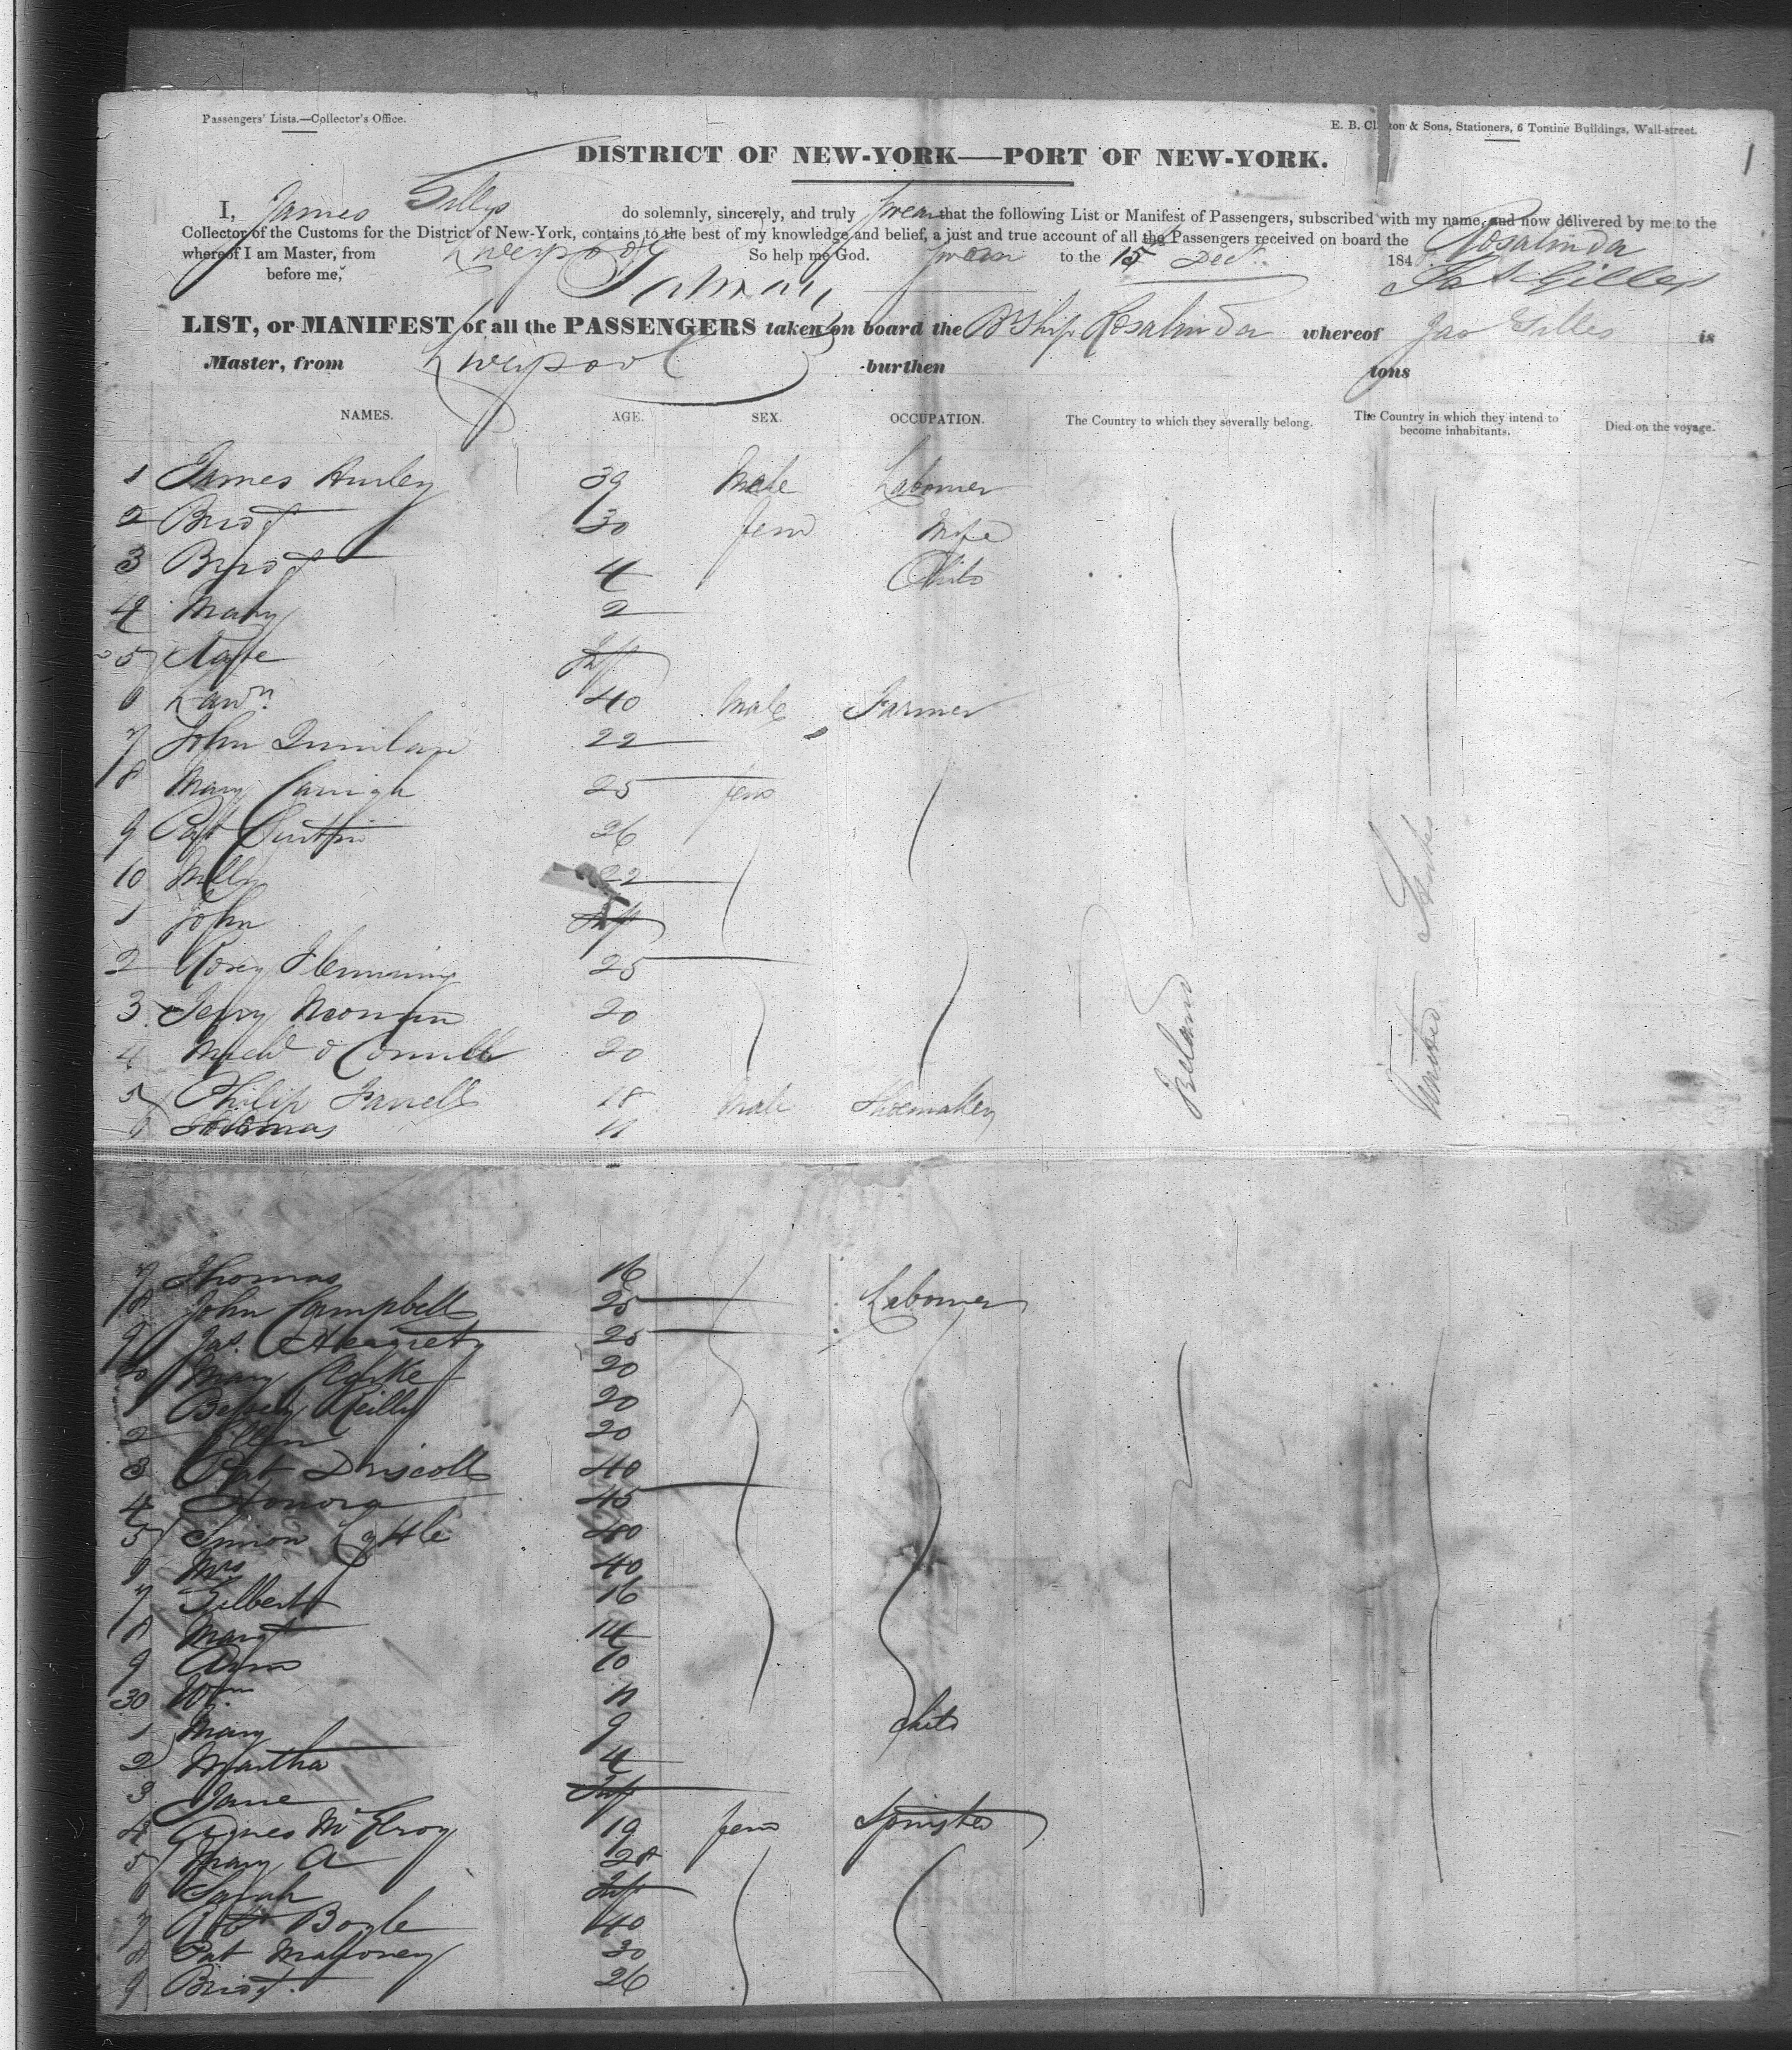 Passengers' Lists.—Collector's Office.
E. B. Clayton & Sons, Stationers, 6 Tontine Buildings, Wall-street.
1
DISTRICT OF NEW-YORK—PORT OF NEW-YORK.
I, James Gillys do solemnly, sincerely, and truly swear that the following List or Manifest of Passengers, subscribed with my name, and now delivered by me to the
Collector of the Customs for the District of New-York, contains to the best of my knowledge and belief, a just and true account of all the Passengers received on board the Rosalinda
whereof I am Master, from Liverpool So help me God. Sworn to the 15 Dec. 184
before me, Jas Gilles
LIST, or MANIFEST of all the PASSENGERS taken on board the Br Ship Rosalinda whereof Jas Gilles is
Master, from Liverpool burthen tons
NAMES. AGE. SEX. OCCUPATION. The Country to which they severally belong. The Country in which they intend to become inhabitants. Died on the voyage.
1 James Hurley 39 Male Labourer
2 Bridt 30 fem Wife
3 Bridt 4 Child
4 Mary 2
5 Inf
6 Lawn. 40 Male Farmer
7 John Quinlan 22
8 Mary 25 fem
9 Pat 26
10 22
1 John Inf
2 Rosey Flemming 25
3 Jerry Noonan 20
4 Michl O Connell 20
5 Philip Farrell 18 Male Shoemaker
6 Thomas 11
Ireland
United States
7 Thomas 16
8 John Campbell 25 Labourer
9 Jas. 25
20 Mary Clarke 20
1 Betsey Reilly 20
2 Ellen 20
3 Pat Driscoll 40
4 Honora 45
5 Simon Lyttle 40
6 Mrs 40
7 Gilbert 16
8 Margt 14
9 Ann 10
30 Wm. 11
1 Mary 9 Child
2 Martha 4
3 Jane Inf
4 Agnes McElroy 19 fem Spinster
5 Mary A 28
6 Sarah Inf
7 Robt Boyle 40
8 Pat Mahoney 30
9 Bridt. 26